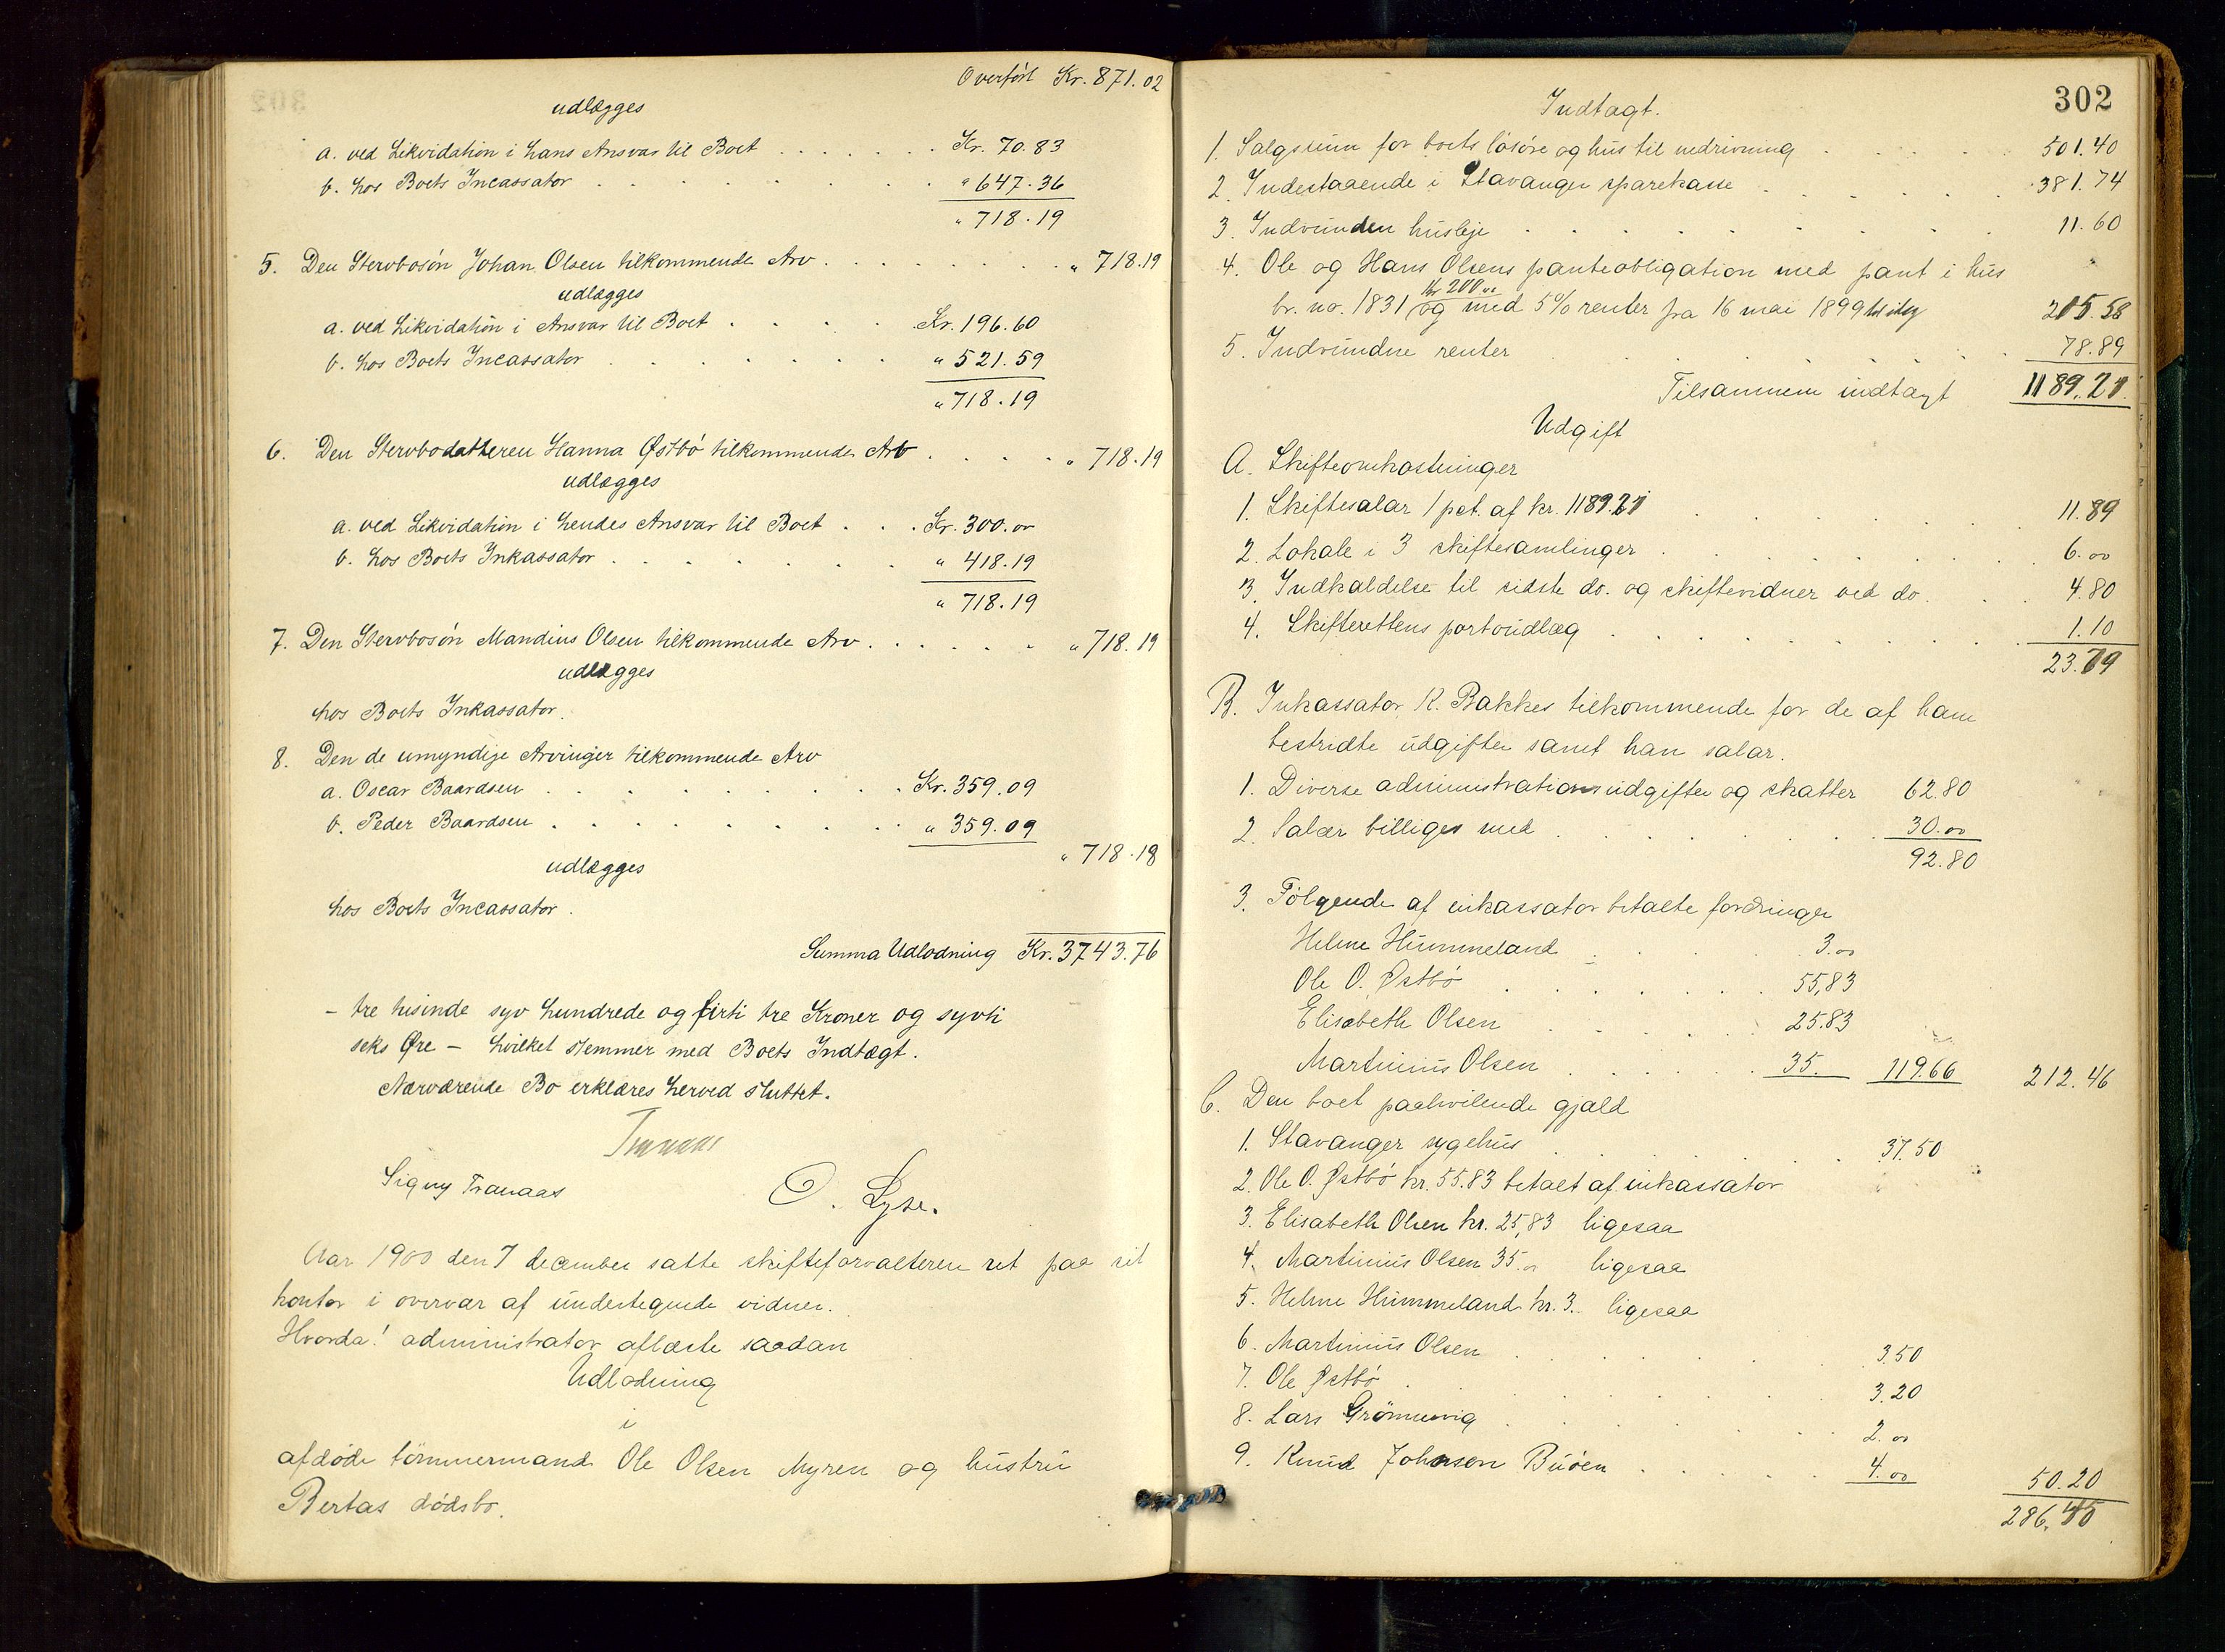 Overført Kr. 871.02
udlægges
a. ved Likvidation i hans Ansvar til Boet . . . . . . Kr. 70.83
b. hos Boets Incassator . . . . . . . . " 647.36
" 718.19
5. Den Stervbosøn Johan Olsen tilkommende Arv . . . . . . . . " 718.19
udlægges
a. ved Likvidation i Ansvar til Boet . . . . . Kr. 196.60
b. hos Boets Incassator . . . . . . . " 521.59
" 718.19
6. Den Stervbodatteren Hanna Østbø tilkommende Arv . . . . " 718.19
udlægges
a. ved Likvidation i hendes Ansvar til Boet . . . Kr. 300.00
b. hos Boets Inkassator . . . . . . . " 418.19
" 718.19
7. Den Stervbosøn Mandius Olsen tilkommende Arv . . . . . . " 718.19
udlægges
hos Boets Inkassator.
8. Den de umyndige Arvinger tilkommende Arv
a. Oscar Baardsen . . . . . . . . . Kr. 359.09
b. Peder Baardsen . . . . . . . . " 359.09
" 718.18
udlægges
hos Boets Incassator.
Summa Udlodning Kr. 3743.76
- tre tusinde syv hundrede og firti tre Kroner og syvti
seks Øre - hvilket stemmer med Boets Indtægt.
Nærværende Bo erklæres herved sluttet.
Tranaas
Signy Tranaas
O. Lyse.
Aar 1900 den 7 december satte skifteforvalteren ret paa sit
kontor i overvær af undertegnede vidner.
Hvorda! administrator aflæste saadan
Udlodning
i
afdøde tømmermand Ole Olsen Myren og hustru
Bertas dødsbo.
302
Indtægt.
1. Salgssum for boets løsøre og hus til nedrivning . . . . . 501.40
2. Indestaaende i Stavanger sparekasse . . . . . 381.74
3. Indvunden husleje . . . . . . . . 11.60
4. Ole og Hans Olsens panteobligation med pant i hus "
kr 200.00
br. no. 1831 og med 5% renter fra 16 mai 1899 til idag 215.58
5. Indvundne renter . . . . . . 78.89
Tilsammen indtægt 1189.21
Udgift
A. Skifteomkostninger
1. Skiftesalær 1 pct. af kr. 1189.21 . . . . . 11.89
2. Lokale i 3 skiftesamlinger . . . . . . 6.00
3. Indkaldelse til sidste do. og skiftevidner ved do. . . 4.80
4. Skifterettens portoudlæg . . . . . . . 1.10
23.79
B. Inkassator K. Bakkes tilkommende for de af ham
bestridte udgifter samt han salær.
1. Diverse administrationsudgifter og skatter 62.80
2. Salær billiges med . . . . . 30.00
92.80
3. Følgende af inkassator betalte fordringer
Helene Hummeland . . . . 3.00
Ole O. Østbø . . . . . . 55,83
Elisabeth Olsen . . . . . 25.83
Martinius Olsen . . . . . . 35. 119.66 212.46
C. Den boet paahvilende gjæld
1. Stavanger sygehus . . . . . . 37.50
2. Ole O. Østbø kr. 55.83 betalt af inkassator
3. Elisabeth Olsen kr. 25,83 ligesaa
4. Martinius Olsen 35.00 ligesaa
5. Helene Hummeland kr. 3. ligesaa
6. Martinius Olsen . . . . . . 3.50
7. Ole Østbø . . . . . . . 3.20
8. Lars Grønnevig . . . . . . 2.00
9. Knud Johnson Buøen . . . . . 4.00
50.20
286.45